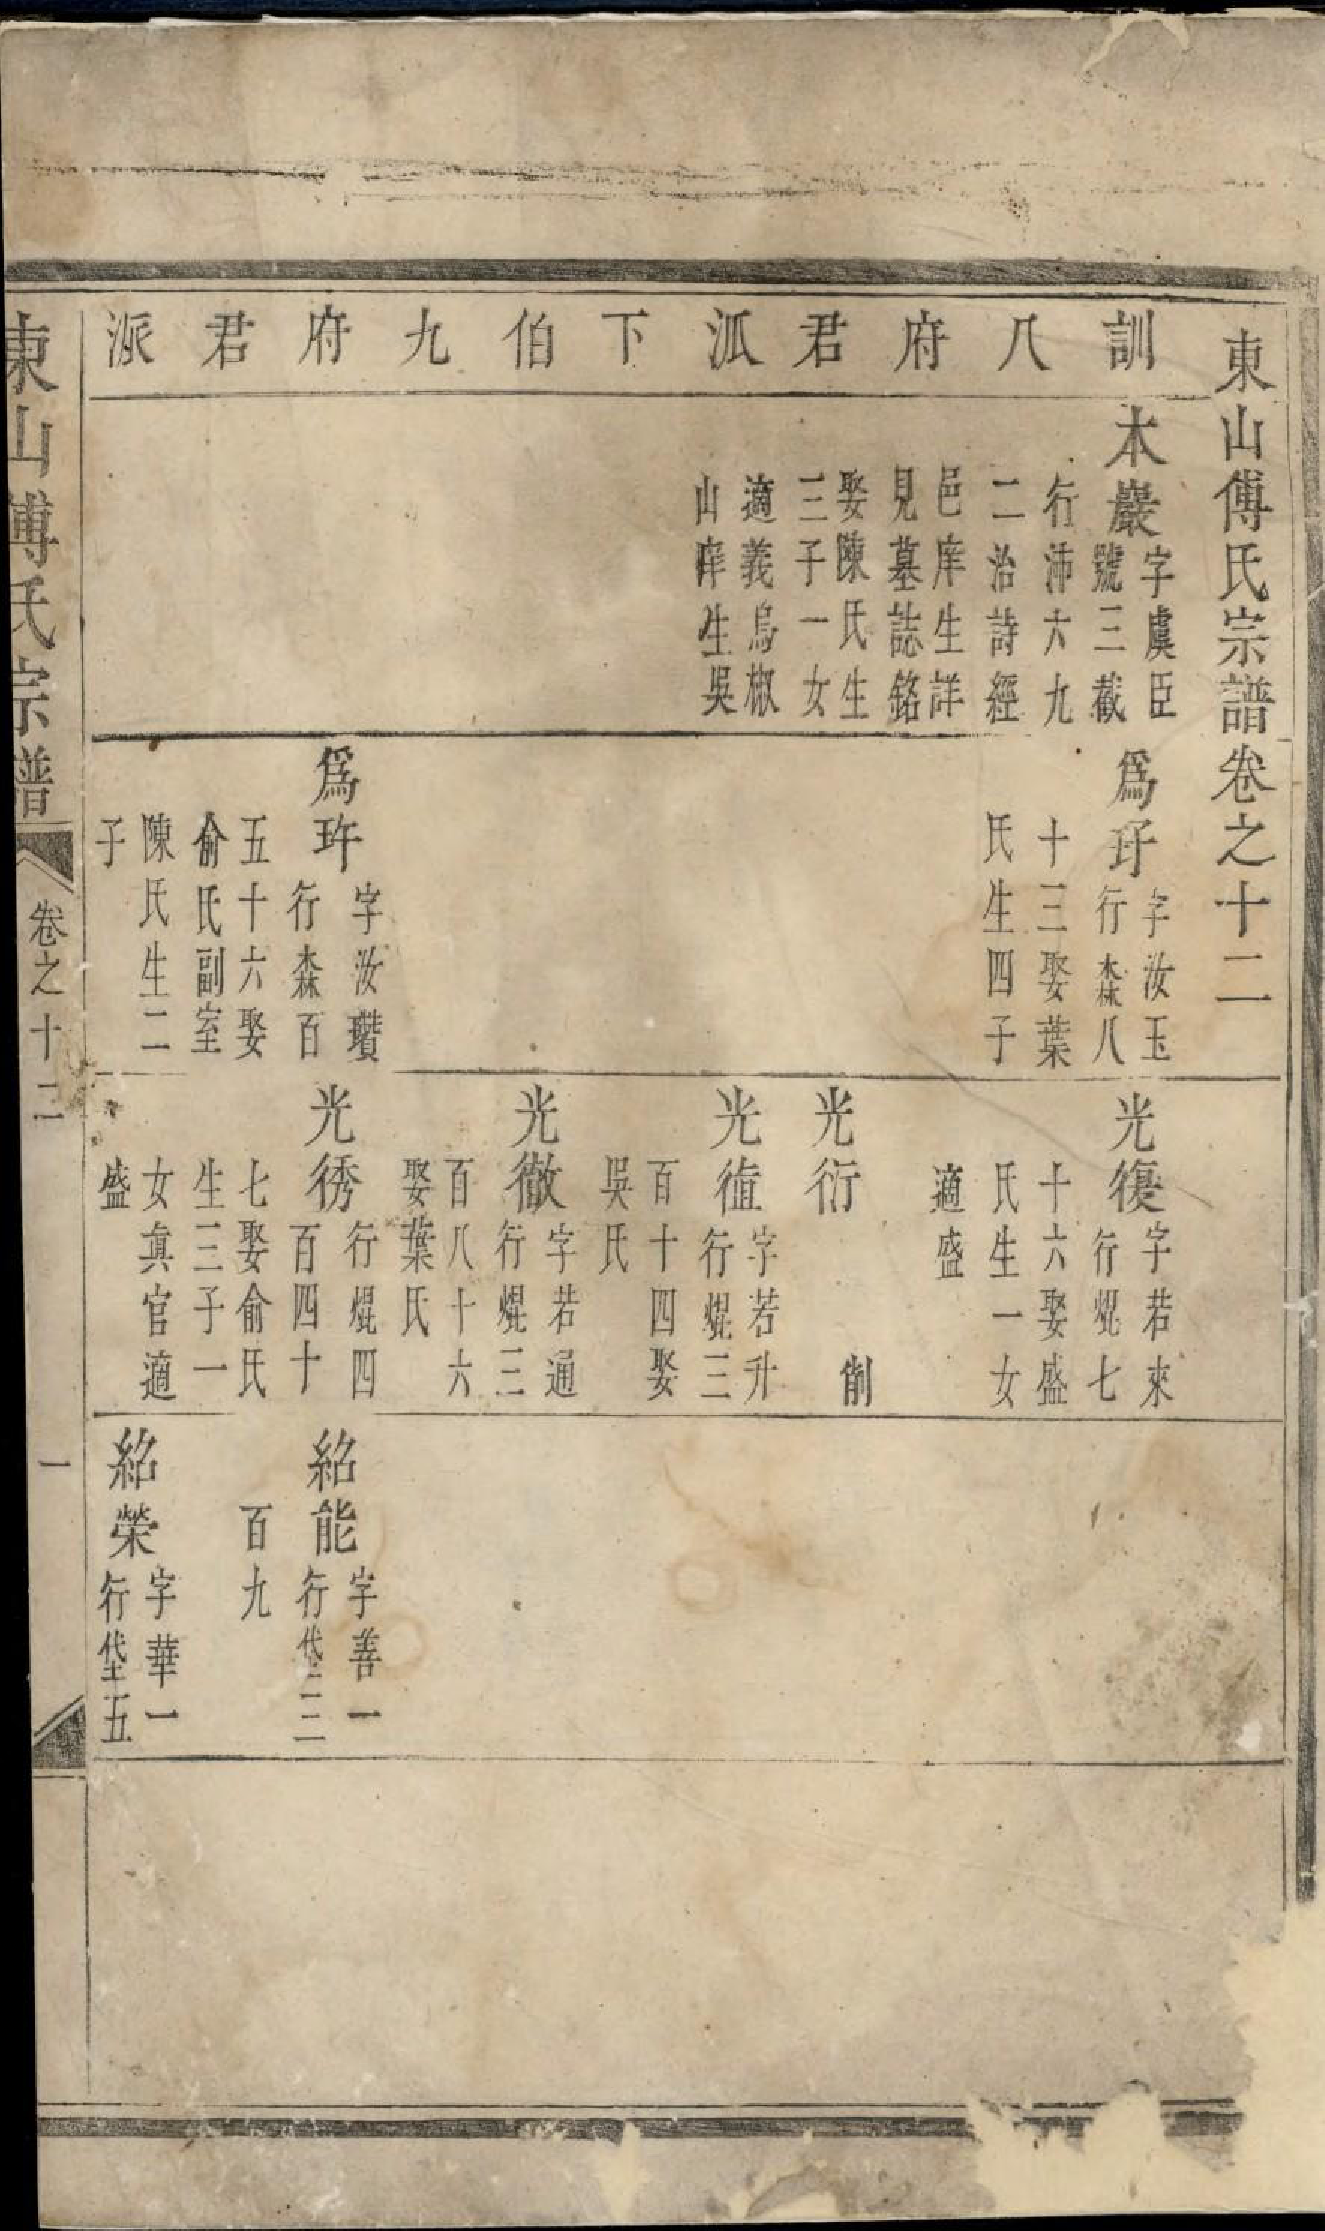 東山傅氏宗譜卷之十二
訓八府君派下伯九府君派
本巖
字虞臣
號三截
行沛六九
二治詩經
邑庠生詳
見墓誌銘
娶陳氏生
三子一女
適義烏椒
山庠生吳
爲玗
字汝玉
行森八
十三娶葉
氏生四子
爲玝
字汝瓚
行森百
五十六娶
俞氏副室
陳氏生二
子
光復
字若來
行焜七
十六娶盛
氏生一女
適盛
光衍
削
光值
字若升
行焜三
百十四娶
吳氏
光徹
字若通
行焜三
百八十六
娶葉氏
光徬
行焜四
百四十
七娶俞氏
生三子一
女真官適
盛
紹能
字善一
行垡三
百九
紹榮
字華一
行垡五
東山傅氏宗譜
卷之十二
一